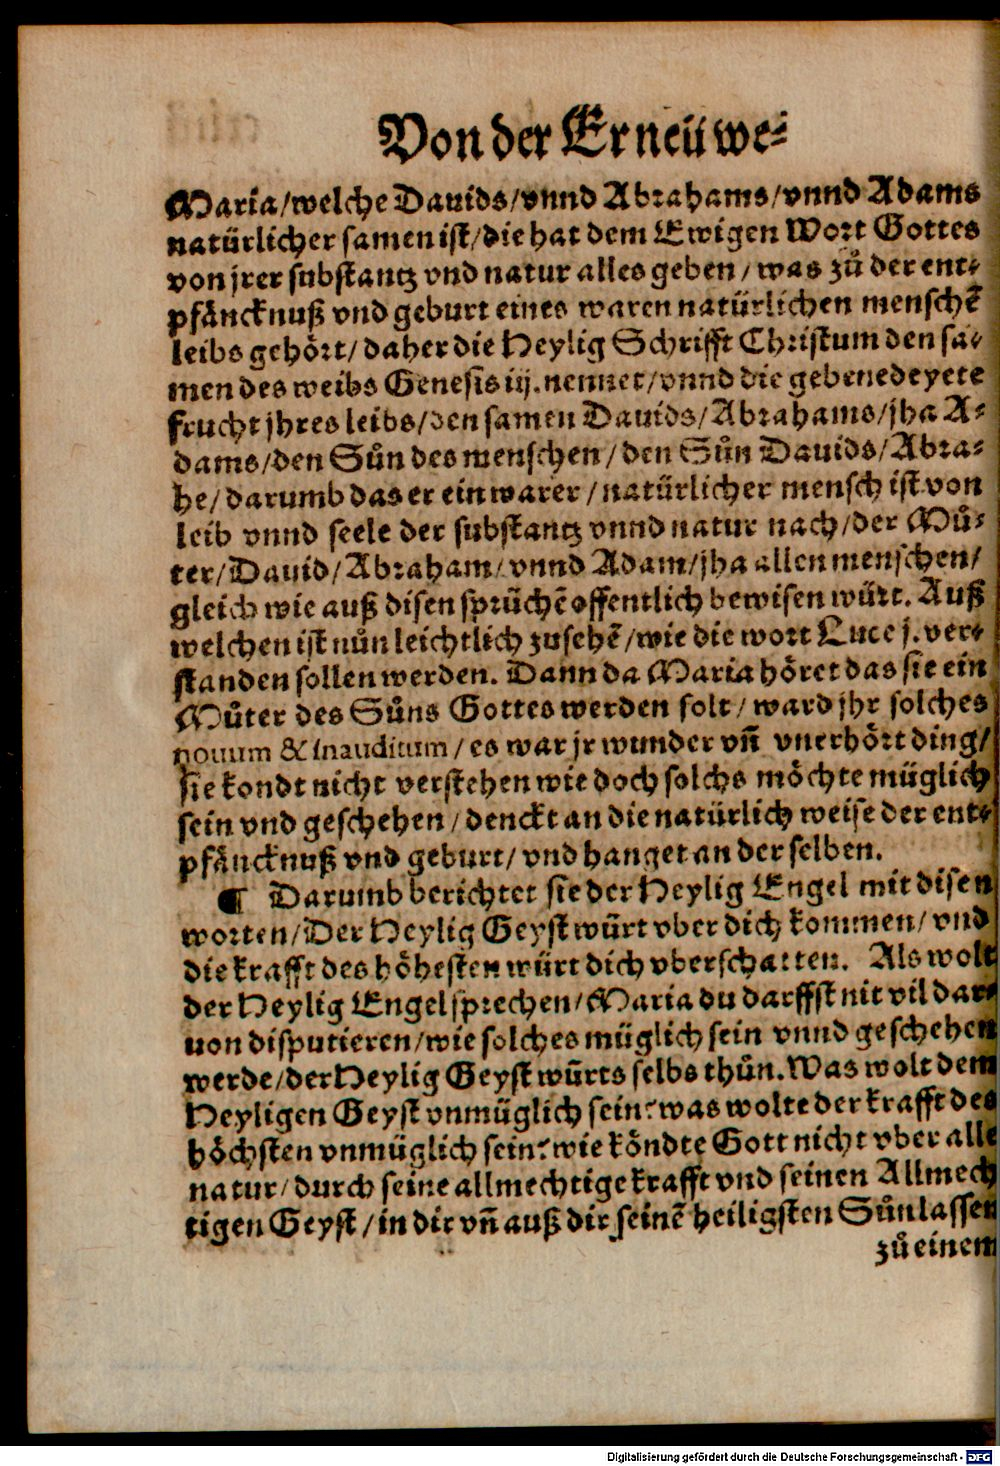 Von der Erneüwe⸗
Maria/welche Dauids/vnnd Abrahams/vnnd Adams
natürlicher samen ist/die hat dem Ewigen Wort Gottes
von jrer substantz vnd natur alles geben/was zů der ent⸗
pfäncknuß vnd geburt eines waren natürlichen menschẽ
leibs gehört/daher die Heylig Schrifft Christum den sa⸗
men des weibs Genesis iij. nennet/vnnd die gebenedeyete
frucht jhres leibs/den samen Dauids/Abrahams/jha A⸗
dams/den Sůn des menschen/den Sůn Dauids/Abra⸗
he/darumb das er ein warer/natürlicher mensch ist von
leib vnnd seele der substantz vnnd natur nach/der Mů⸗
ter/Dauid/Abraham/vnnd Adam/jha allen menschen/
gleich wie auß disen sprüchẽ offentlich bewisen würt. Auß
welchen ist nůn leichtlich zusehẽ/wie die wort Luce j. ver⸗
standen sollen werden. Dann da Maria höret das sie ein
Můter des Sůns Gottes werden solt/ward jhr solches
nouum & inauditum/es war jr wunder vñ vnerhört ding/
sie kondt nicht verstehen wie doch solchs möchte müglich
sein vnd geschehen/denckt an die natürlich weise der ent⸗
pfäncknuß vnd geburt/vnd hanget an der selben.
¶ Darumb berichtet sie der Heylig Engel mit disen
worten/Der Heylig Geyst würt vber dich kommen/vnd
die krafft des höhesten würt dich vberschatten. Als wolt
der Heylig Engel sprechen/Maria du darffst nit vil dar⸗
uon disputieren/wie solches müglich sein vnnd geschehen
werde/der Heylig Geyst würts selbs thůn. Was wolt dem
Heyligen Geyst vnmüglich sein? was wolte der krafft des
höchsten vnmüglich sein? wie köndte Gott nicht vber alle
natur/durch seine allmechtige krafft vnd seinen Allmech
tigen Geyst/in dir vñ auß dir seinẽ heiligsten Sůn lassen
zů einem
Digitalisierung gefördert durch die Deutsche Forschungsgemeinschaft - DFG